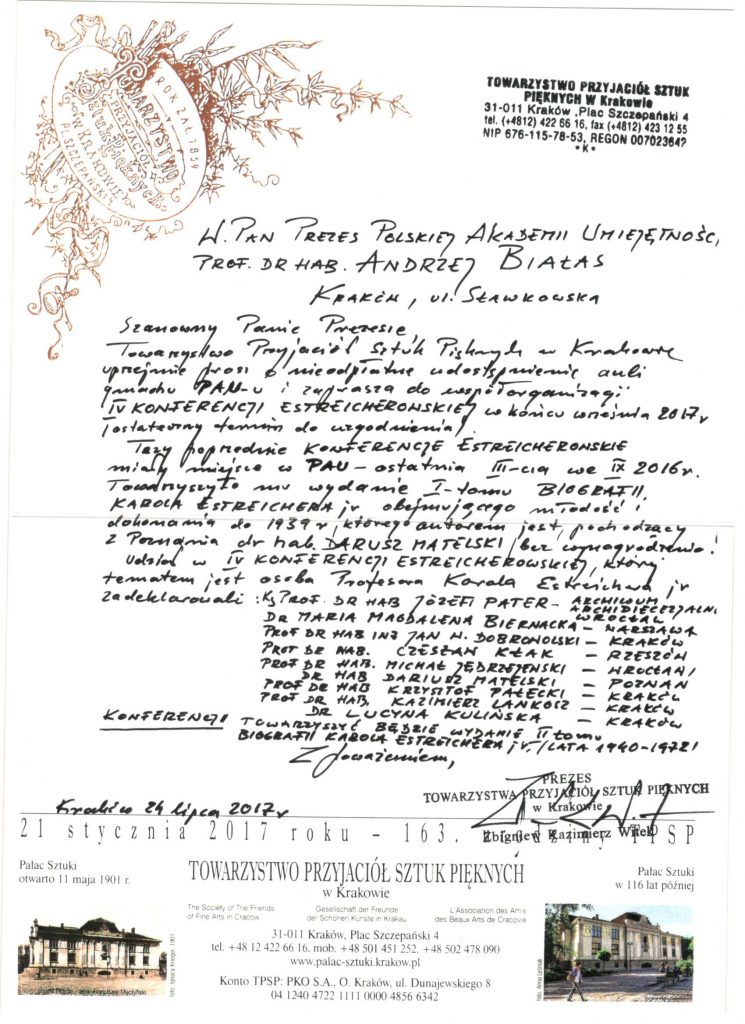 ROK ZAŁ. 1854
TOWARZYSTWO
PRZYJACIÓŁ
Sztuk Pięknych
W KRAKOWIE
PL. SZCZEPAŃSKI 4
TOWARZYSTWO PRZYJACIÓŁ SZTUK
PIĘKNYCH W Krakowie
31-011 Kraków ,Plac Szczepański 4
tel. (+4812) 422 66 16, fax (+4812) 423 12 55
NIP 676-115-78-53, REGON 007023642
"K"
W. PAN PREZES POLSKIEJ AKADEMII UMIEJĘTNOŚCI
PROF. DR HAB. ANDRZEJ BIAŁAS
KRAKÓW, UL. SŁAWKOWSKA
Szanowny Panie Prezesie,
Towarzystwo Przyjaciół Sztuk Pięknych w Krakowie
uprzejmie prosi o nieodpłatne udostępnienie auli
gmachu PAU-u i zaprasza do współorganizacji
IV KONFERENCJI ESTREICHEROWSKIEJ w końcu września 2017r
(ostateczny termin do uzgodnienia)
Trzy poprzednie KONFERENCJE ESTREICHEROWSKIE
miały miejsce w PAU – ostatnia III-cia we IX 2016r.
Towarzyszyło mu wydanie I-tomu BIOGRAFII
KAROLA ESTREICHERA jr obejmującego młodość i
dokonania do 1939 r, którego autorem jest, pochodzący
z Poznania dr hab. DARUSZ MATELSKI, bez wynagrodzenia!
Udział w IV KONFERENCJI ESTREICHEROWSKIEJ, której
tematem jest osoba Profesora Karola Estreichera jr
zadeklarowali : Ks PROF. DR HAB JÓZEF PATER – ARCHIWUM ARCHIDIECEZJALNE WROCŁAW
DR MARIA MAGDALENA BIERNACKA – WARSZAWA
PROF DR HAB INŻ JAN W. DOBROWOLSKI – KRAKÓW
PROF DR HAB. CZESŁAW KŁAK – RZESZÓW
PROF DR HAB. MICHAŁ JĘDRZEJEWSKI – WROCŁAW
DR HAB DARIUSZ MATELSKI – POZNAŃ
PROF DR HAB KRZYSTOF PAŁECKI – KRAKÓW
PROF DR HAB. KAZIMIERZ LANKOSZ – KRAKÓW
DR LUCYNA KULIŃSKA – KRAKÓW
KONFERENCJI TOWARZYSZYĆ BĘDZIE WYDANIE II tomu
BIOGRAFII KAROLA ESTREICHERA jr. /LATA 1940-1972/
Z poważaniem,
PREZES
TOWARZYSTWA PRZYJACIÓŁ SZTUK PIĘKNYCH
w Krakowie
Zbigniew Kazimierz Witek
Kraków 24 lipca 2017r
21 stycznia 2017 roku – 163. TPSP
Pałac Sztuki
otwarto 11 maja 1901 r.
TOWARZYSTWO PRZYJACIÓŁ SZTUK PIĘKNYCH
w Krakowie
Pałac Sztuki
w 116 lat później
The Society of The Friends
of Fine Arts in Cracow
Gesellschaft der Freunde
der Schönen Künste in Krakau
L'Association des Amis
des Beaux Arts de Cracovie
31-011 Kraków, Plac Szczepański 4
tel. +48 12 422 66 16, mob. +48 501 451 252, +48 502 478 090
www.palac-sztuki.krakow.pl
Konto TPSP: PKO S.A., O. Kraków, ul. Dunajewskiego 8
04 1240 4722 1111 0000 4856 6342
foto: Ignacy Krieger, 1901